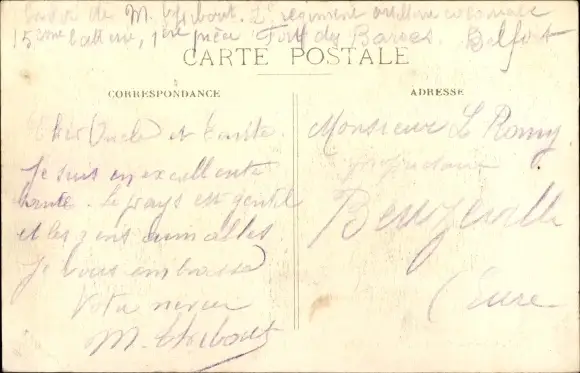 de M. Thibout. 2e régiment artillerie coloniale
15ème batterie, 1ère pièce Fort des Barres. Belfort
CARTE POSTALE
CORRESPONDANCE
ADRESSE
Cher Oncle et Tante.
Je suis en excellente
santé. Le pays est gentil
et les gens aimables.
Je vous embrasse
Votre neveu
M. Thibout
Monsieur Le Romy
propriétaire
Beuzeville
(Eure